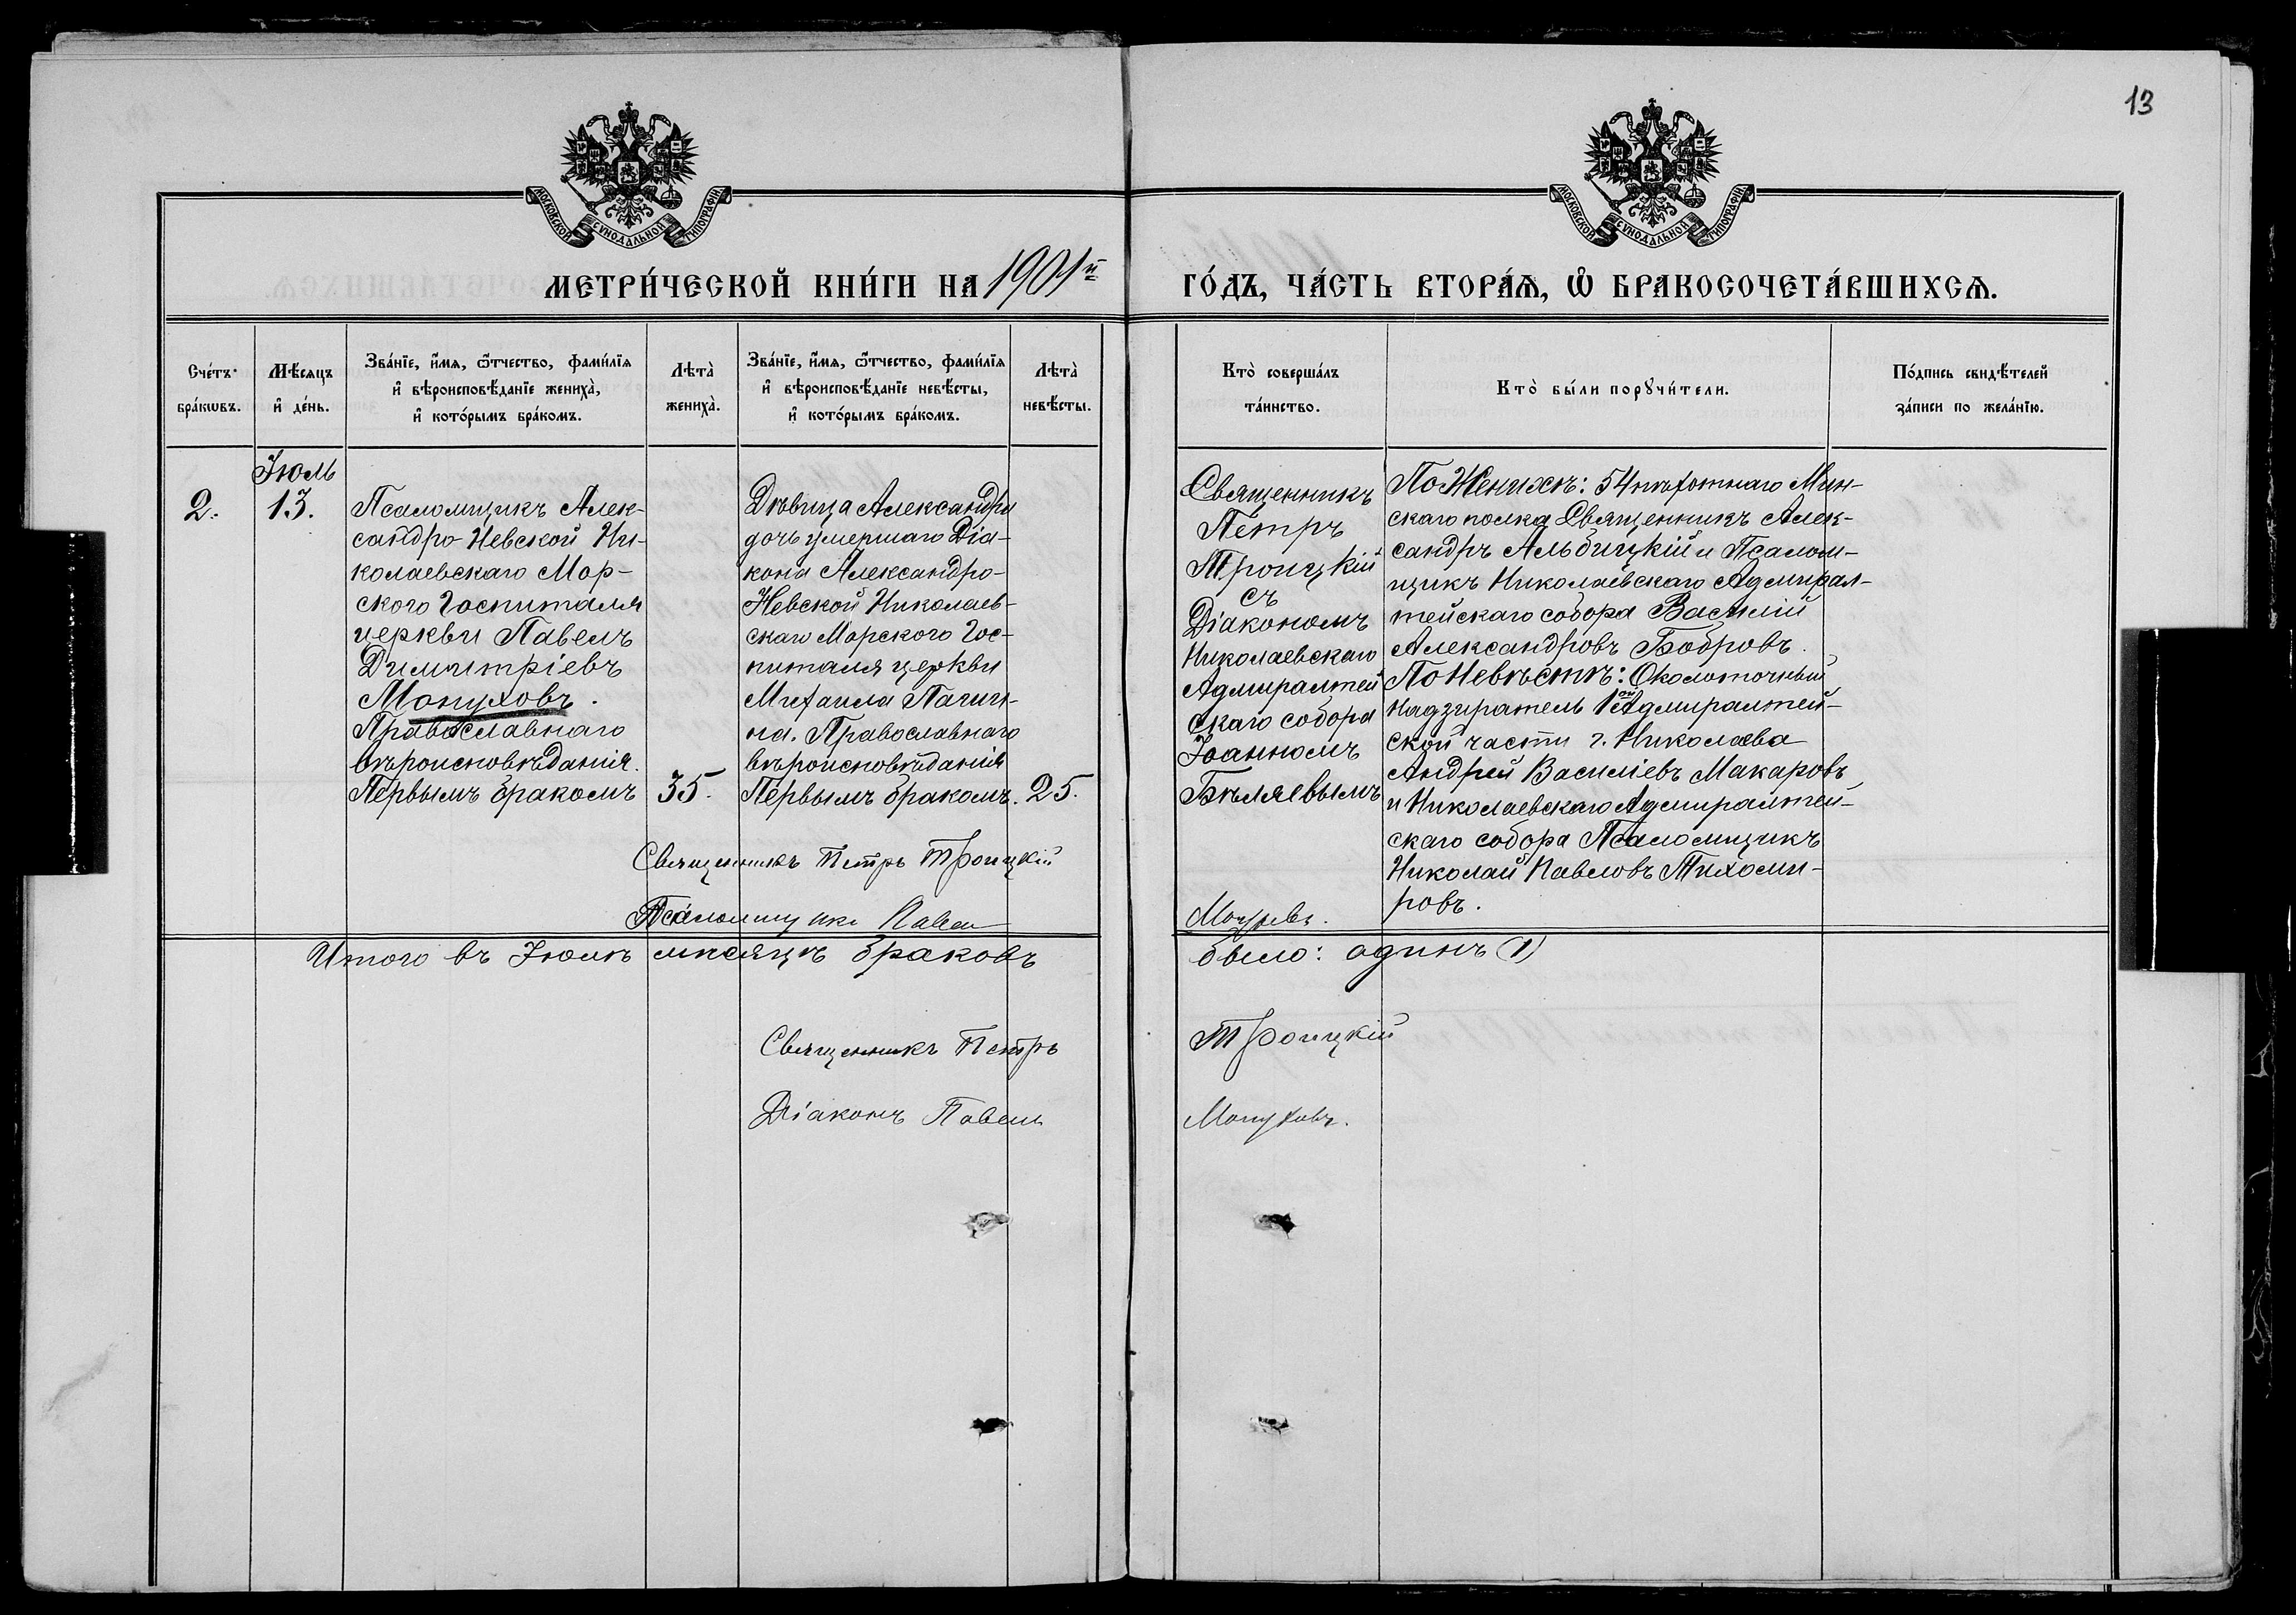 13
МОСКОВСКОЙ СУНОДАЛЬНОЙ ТИПОГРАФІИ
МОСКОВСКОЙ СУНОДАЛЬНОЙ ТИПОГРАФІИ
МЕТРИ́ЧЕСКОЙ КНИ́ГИ НА 1901й
ГО́ДЪ, ЧА́СТЬ ВТОРА́Ѧ, Ѽ БРАКОСОЧЕТА́ВШИХСѦ.
Сче́тъ
бра́кѡвъ.
Мѣ́сяцъ
и҆ де́нь.
Зва́нїе, и҆́мѧ, ѻ҆́тчество, фами́лїѧ
и҆ вѣроисповѣ́данїе жениха̀,
и҆ кото́рымъ бра́комъ.
Лѣта̀
жениха̀.
Зва́нїе, и҆́мѧ, ѻ҆́тчество, фами́лїѧ
и҆ вѣроисповѣ́данїе невѣ́сты,
и҆ кото́рымъ бра́комъ.
Лѣта̀
невѣ́сты.
Кто̀ соверша́лъ
та́инство.
Кто̀ бы́ли порꙋчи́тели.
По́дпись свидѣ́телей
за́писи по жела́нїю.
2.
Іюль
13.
Псаломщикъ Алек-
сандро-Невской Ни-
колаевскаго Мор-
ского Госпиталя
церкви Павелъ
Димитріевъ
Мопуховъ.
Православнаго
вѣроисповѣданія.
Первымъ бракомъ
35.
Дѣвица Александра
дочь умершаго Діа-
кона Александро-
Невской Николаев-
скаго Морского Гос-
питаля церкви
Михаила Пагин-
на. Православнаго
вѣроисповѣданія
Первымъ бракомъ.
25.
Священникъ
Петръ
Троицкій
съ
Діакономъ
Николаевскаго
Адмиралтей
скаго собора
Іоанномъ
Бѣляевымъ
По Женихѣ: 54 пѣхотнаго Мин-
скаго полка Священникъ Алек-
сандръ Альбицкій и Псалом-
щикъ Николаевскаго Адмирал-
тейскаго собора Василій
Александровъ Бобровъ.
По Невѣстѣ: Околоточный
Надзиратель 1ой Адмиралтей-
ской части г. Николаева
Андрей Василіевъ Макаровъ
и Николаевскаго Адмиралтей-
скаго собора Псаломщикъ
Николай Павловъ Тихоми-
ровъ.
Священникъ Петръ Троицкій
Псаломщикъ Павелъ
Итого въ Іюлѣ мѣсяцѣ браковъ
было: одинъ (1)
Священникъ Петръ
Троицкій
Діаконъ Павелъ
Мопуховъ.